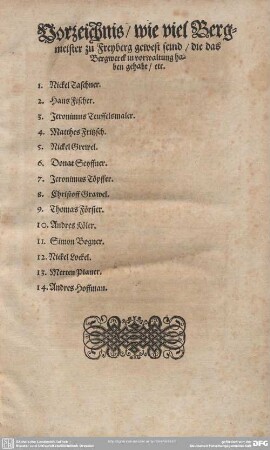 Vorzeichnis / wie viel Berg-
meister zu Freyberg gewest seind / die das
Bergwerck in vorwaltung ha-
ben gehabt / etc.
1. Nickel Taschner.
2. Hans Fischer.
3. Jeronimus Teuffelsmaler.
4. Matthes Fritzsch.
5. Nickel Grewel.
6. Donat Seyffner.
7. Jeronimus Töpffer.
8. Christoff Grawel.
9. Thomas Förster.
10. Andres Köler.
11. Simon Bogner.
12. Nickel Lockel.
13. Merten Planer.
14. Andres Hoffman.
DFG